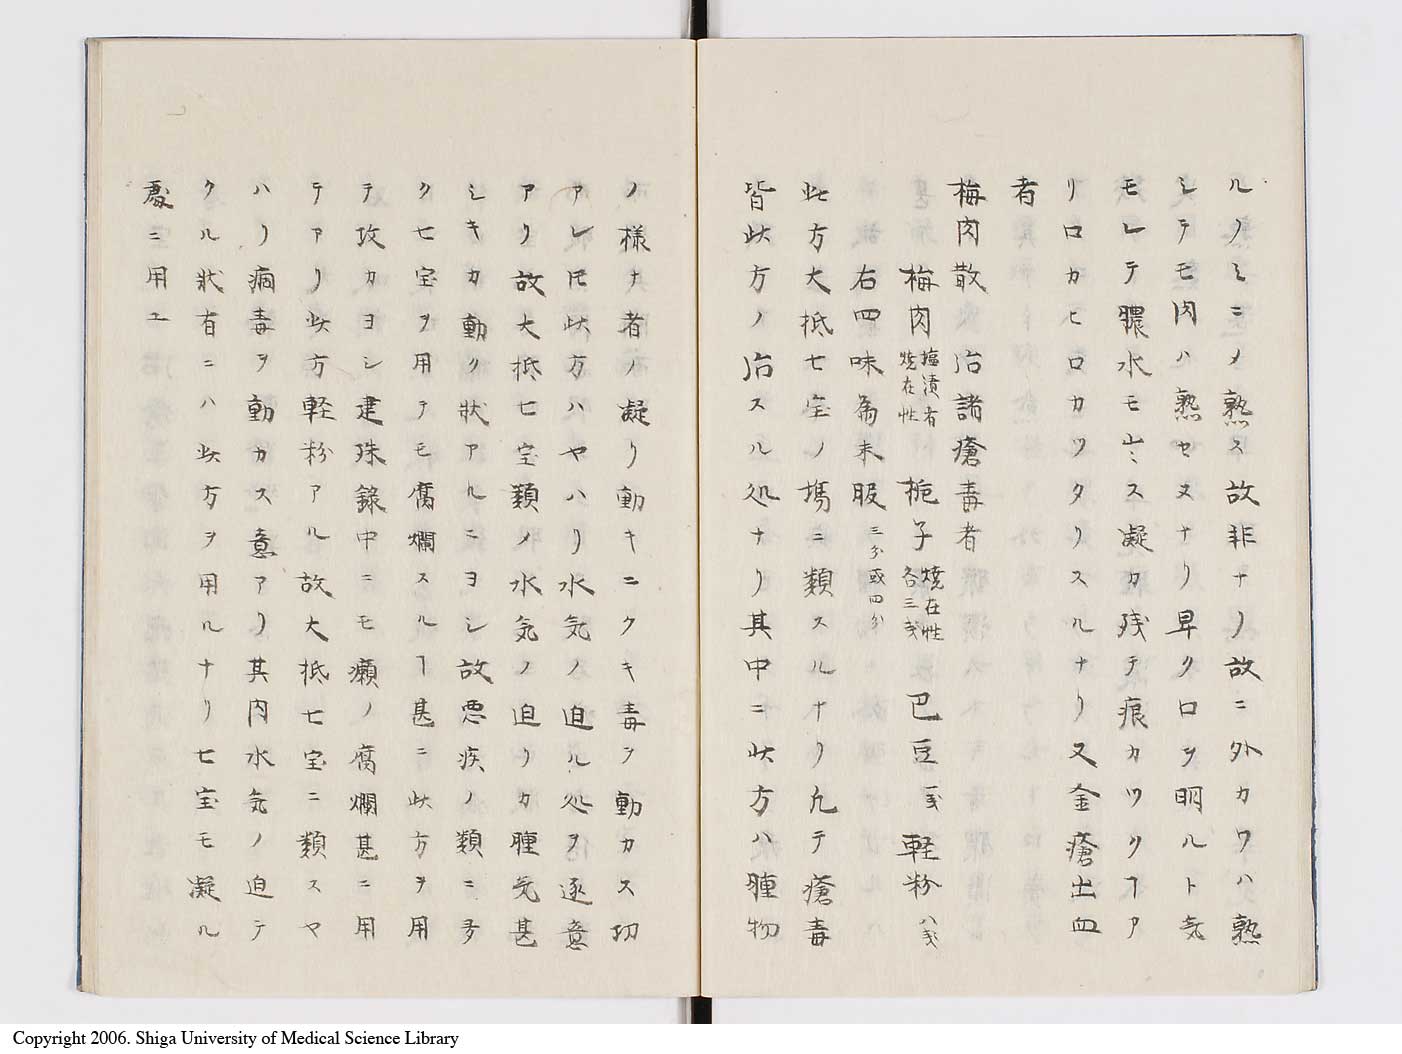 ルノミニメ熟ス故非ナリ故ニ外カワハ熟
シテモ肉ハ熟セヌナリ早ク口ヲ明ルト気
モレテ膿水モ出ス凝カ残テ痕カツクヿア
リ口カヒロカツタリスルナリ又金瘡出血
者
梅肉散治諸瘡毒者
梅肉 塩漬者焼在性 梔子 焼在性各三戔 巴豆 一戔 軽粉 八戔
右四味為末服 三分或四分
此方大抵七宝ノ場ニ類スルナリ凡テ瘡毒
皆此方ノ治スル処ナリ其中ニ此方ハ腫物
ノ様ナ者ノ凝リ動キニクキ毒ヲ動カス功
アレ𪜈此方ハヤハリ水気ノ迫ル処ヲ逐意
アリ故大抵七宝類ノ水気ノ迫リカ腫気甚
シキカ動ク状アルニヨシ故悪疾ノ類ニ多
ク七宝ヲ用テモ腐爛スルヿ甚ニ此方ヲ用
テ攻カヨシ建珠録中ニモ癩ノ腐爛甚ニ用
テアリ此方軽粉アル故大抵七宝ニ類スヤ
ハリ病毒ヲ動カス意アリ其内水気ノ迫テ
クル状有ニハ此方ヲ用ルナリ七宝モ凝ル
処ニ用ユ
Copyright 2006. Shiga University of Medical Science Library